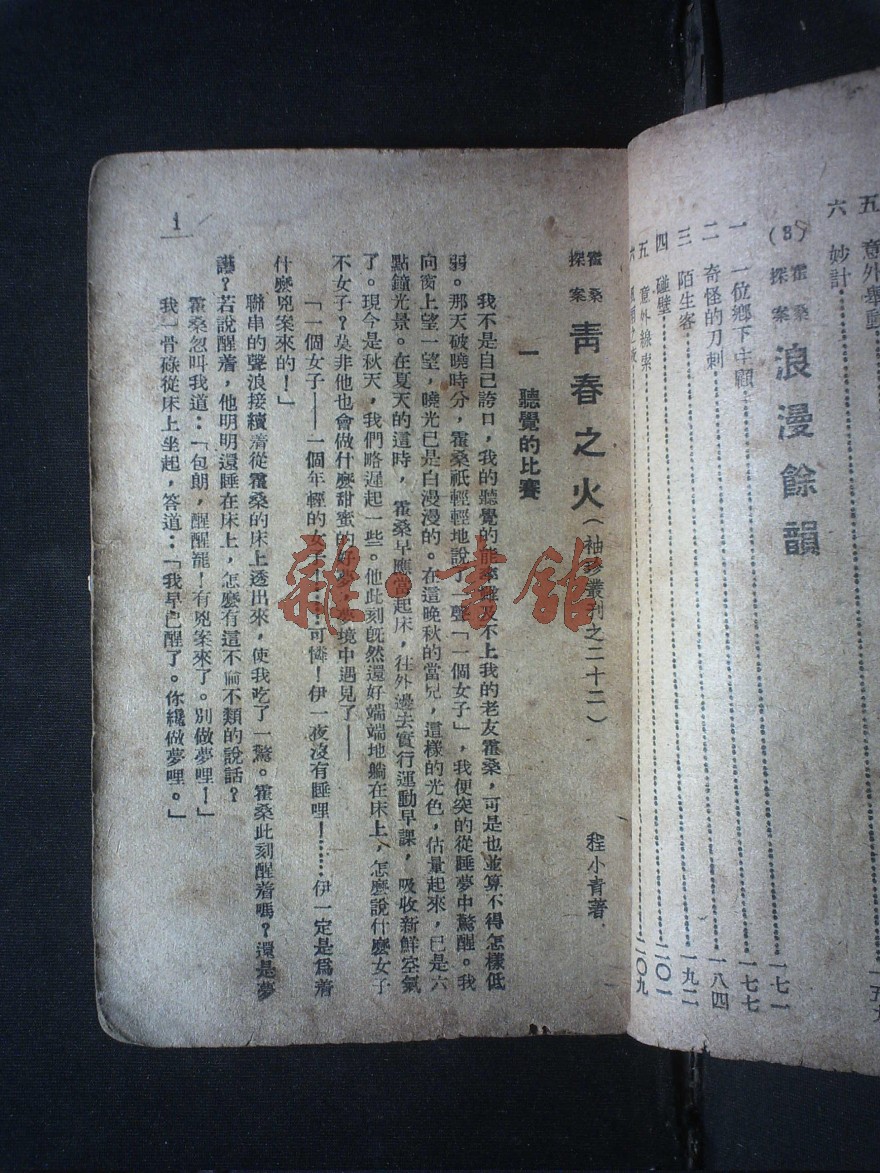 五 意外舉動
六 妙計
(3) 霍桑探案 浪漫餘韻 一七一
一 一位鄉下主顧 一七七
二 奇怪的刀刺 一八四
三 陌生客 一九二
四 碰壁 二〇一
五 意外線索 二〇九
霍桑探案 青春之火(袖珍叢刊之二十二) 程小青著
一 聽覺的比賽
我不是自己誇口,我的聽覺的能率雖及不上我的老友霍桑,可是也並算不得怎樣低
弱。那天破曉時分,霍桑祇輕輕地說了一聲「一個女子」,我便突的從睡夢中驚醒。我
向窗上望一望,曉光已是白漫漫的。在這晚秋的當兒,這樣的光色,估量起來,已是六
點鐘光景。在夏天的這時,霍桑早應當起床,往外邊去實行運動早課,吸收新鮮空氣
了。現今是秋天,我們略遲起一些。他此刻既然還好端端地躺在床上,怎麼說什麼女子
不女子?莫非他也會做什麼甜蜜的好夢,夢境中遇見了——
「一個女子——一個年輕的女子……可憐!伊一夜沒有睡哩!……伊一定是爲着
什麼兇案來的!」
聯串的聲浪接續着從霍桑的床上透出來,使我吃了一驚。霍桑此刻醒着嗎?還是夢
讝?若說醒着,他明明還睡在床上,怎麼有這不倫不類的說話?
霍桑忽叫我道:「包朗,醒醒罷!有兇案來了。別做夢哩!」
我一骨碌從床上坐起,答道:「我早已醒了。你纔做夢哩。」
1
雜·書館